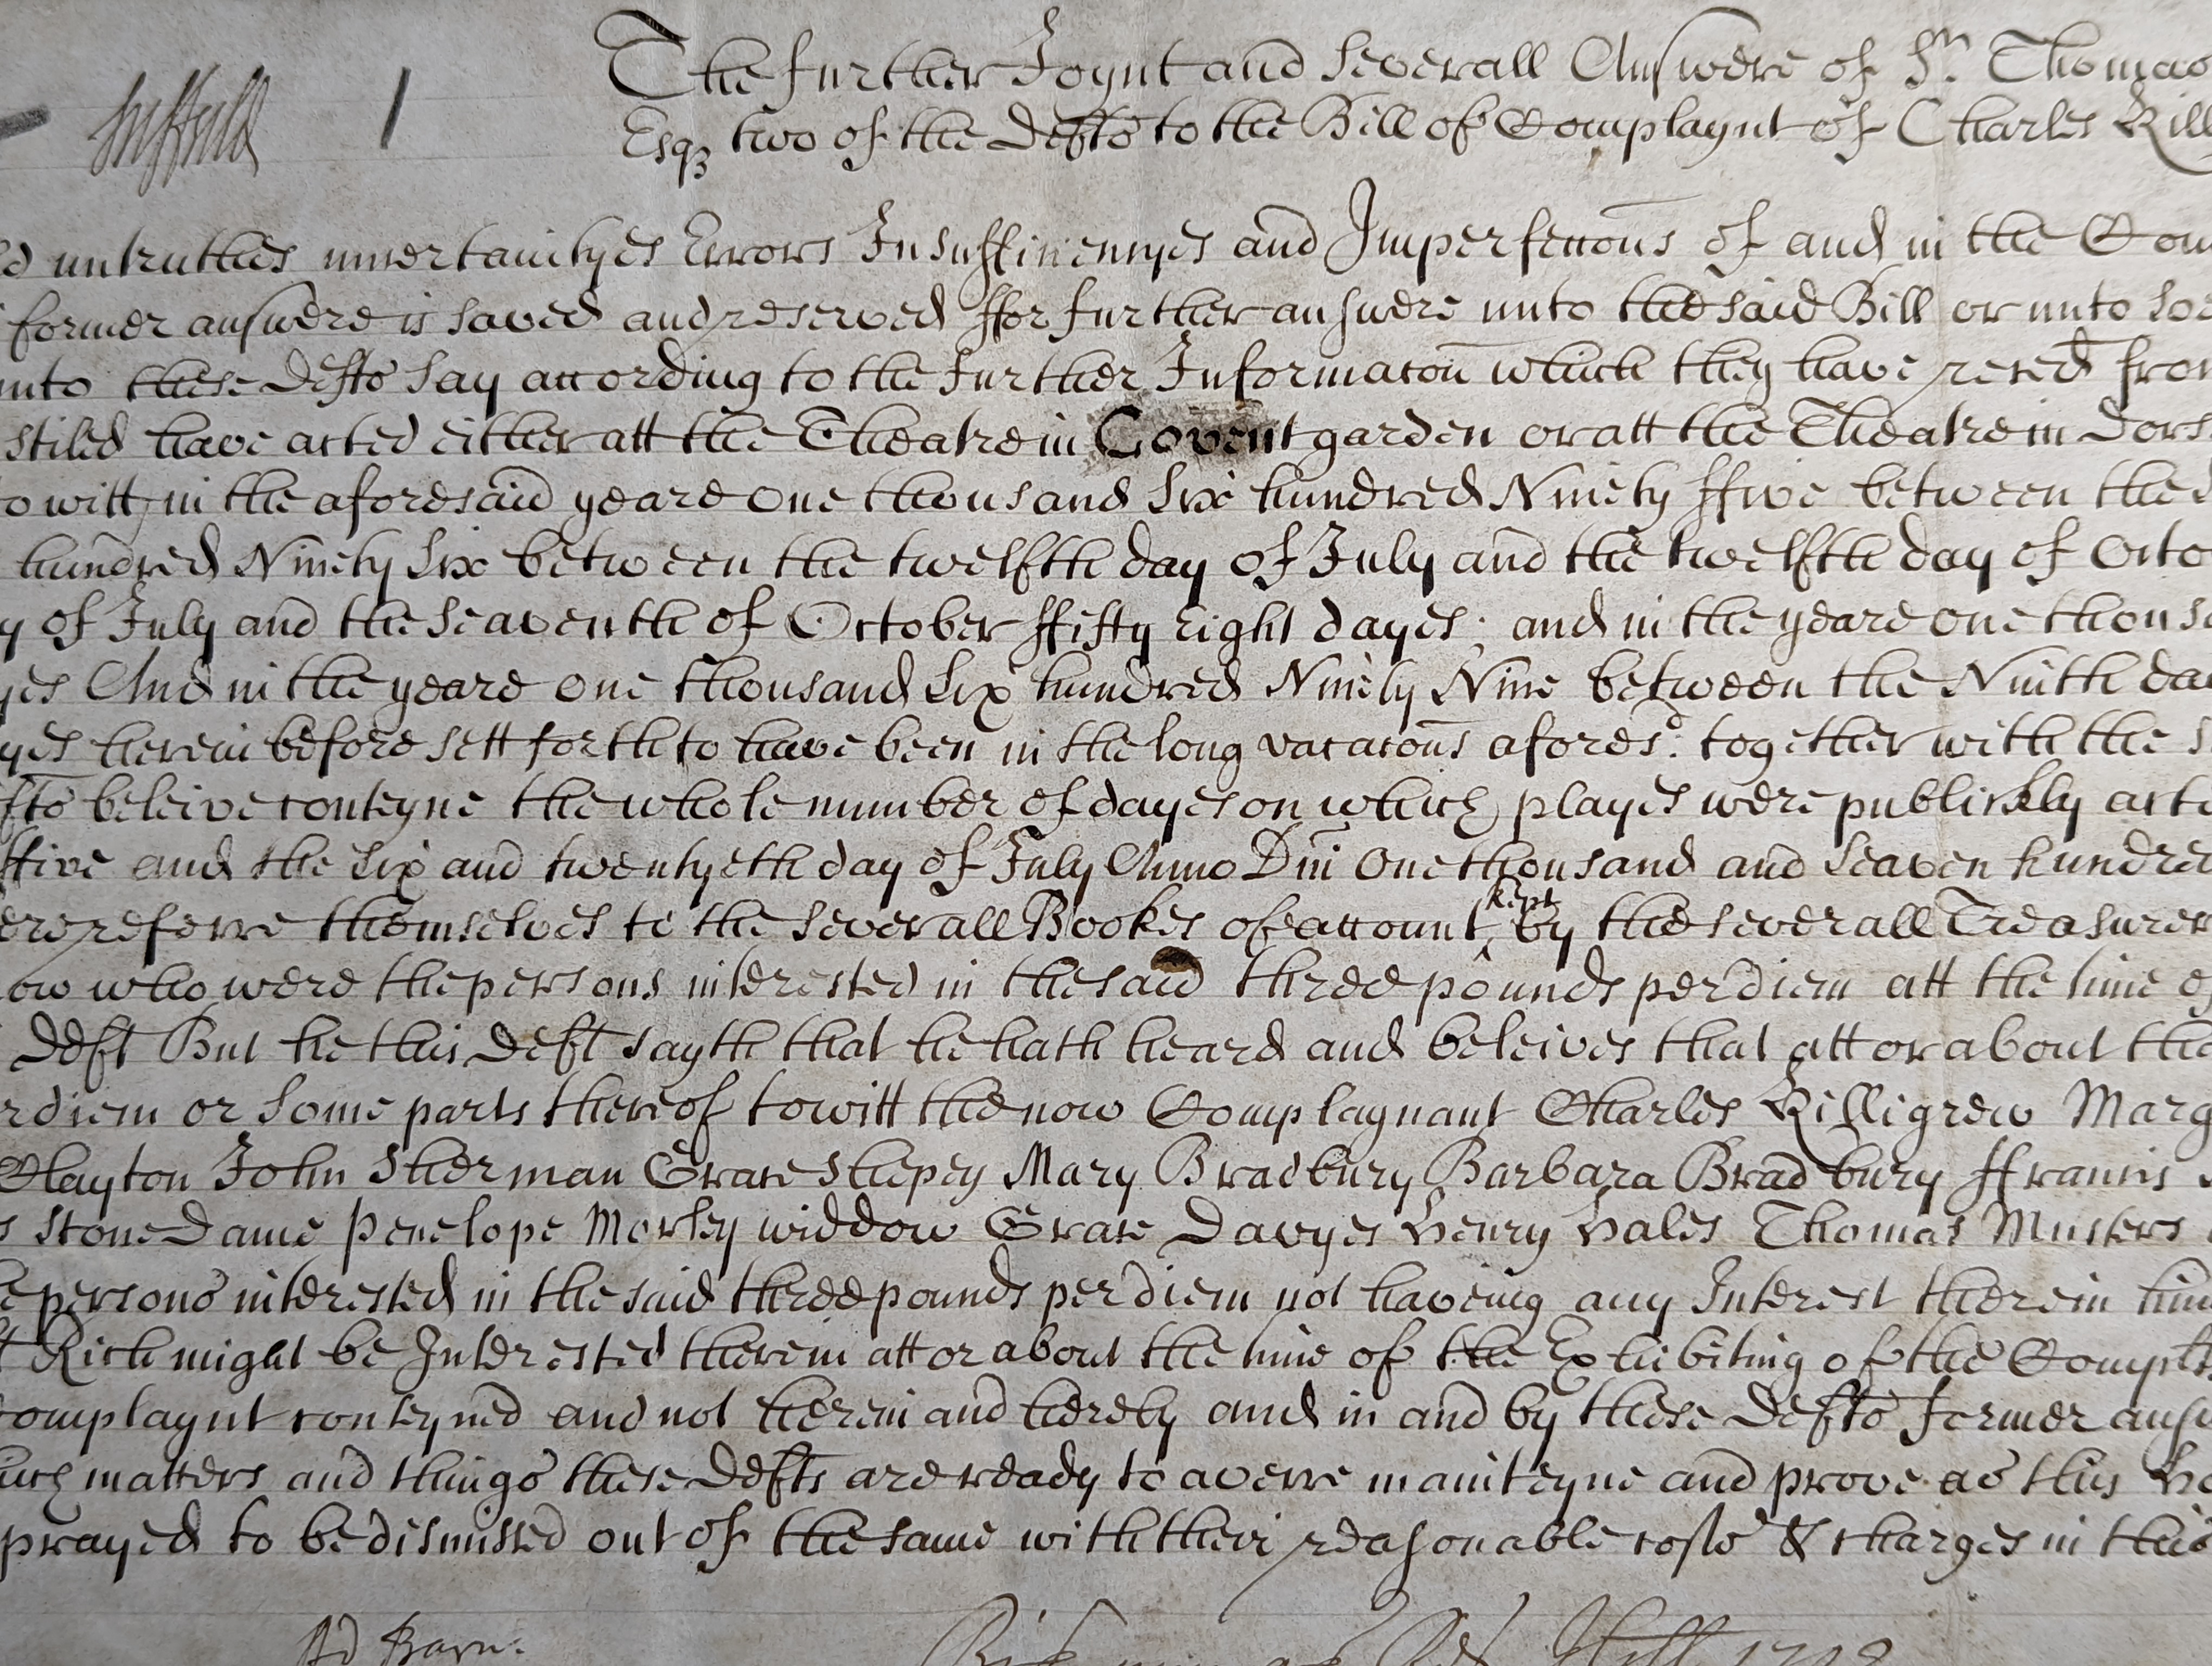 The further Joynt and severall Answere of Sr. Thomas
Esqz two of the Defts to the Bill of Complaynt of Charles Kill
untruthes uncertaintyes Errors Insufficiencyes and Imperfeccons of and in the Com
former answere is saved and reserved ffor further answere unto the said Bill or unto soe
unto these Defts say according to the further Informacon which they have reced from
stiled have acted either att the Theatre in Covent garden or att the Theatre in Dors
to witt in the aforesaid yeare one thousand six hundred Ninety ffive between the
hundred Ninety six between the twelfth day of July and the twelfth day of Octo
y of July and the seaventh of October ffifty eight dayes; and in the yeare one thousa
yes And in the yeare one thousand six hundred Ninety Nine between the Ninth day
yes herein before sett forth to have been in the long vacacons aforesd. together with the s
fts beleive conteyne the whole number of dayes on which playes were publickly acte
ffive and the six and twentyeth day of July Anno Dni One thousand and seaven hundred
referre themselves to the severall Bookes of account kept by the severall Treasurer
ow who were the persons interested in the said three pounds per diem att the time o
Deft But he this Deft sayth that he hath heard and beleives that att or about the
r diem or some parts thereof to witt the now Complaynant Charles Killigrew Marg
Clayton John Sherman Grace Shepey Mary Bradbury Barbara Bradbury ffrancis
s Stone Dame Penelope Morley widdow Grace Davyes Henry Hales Thomas Musters
e persons interested in the said three pounds per diem not haveing any Interest therein him
t Rich might be Interested therein att or about the time of the Exhibiting of the Complts
Complaynt conteyned and not herein and hereby and in and by these Defts former answ
uch matters and things these Defts are ready to averre mainteyne and prove as this Ho
prayed to be dismissed out of the same with their reasonable costs & charges in this